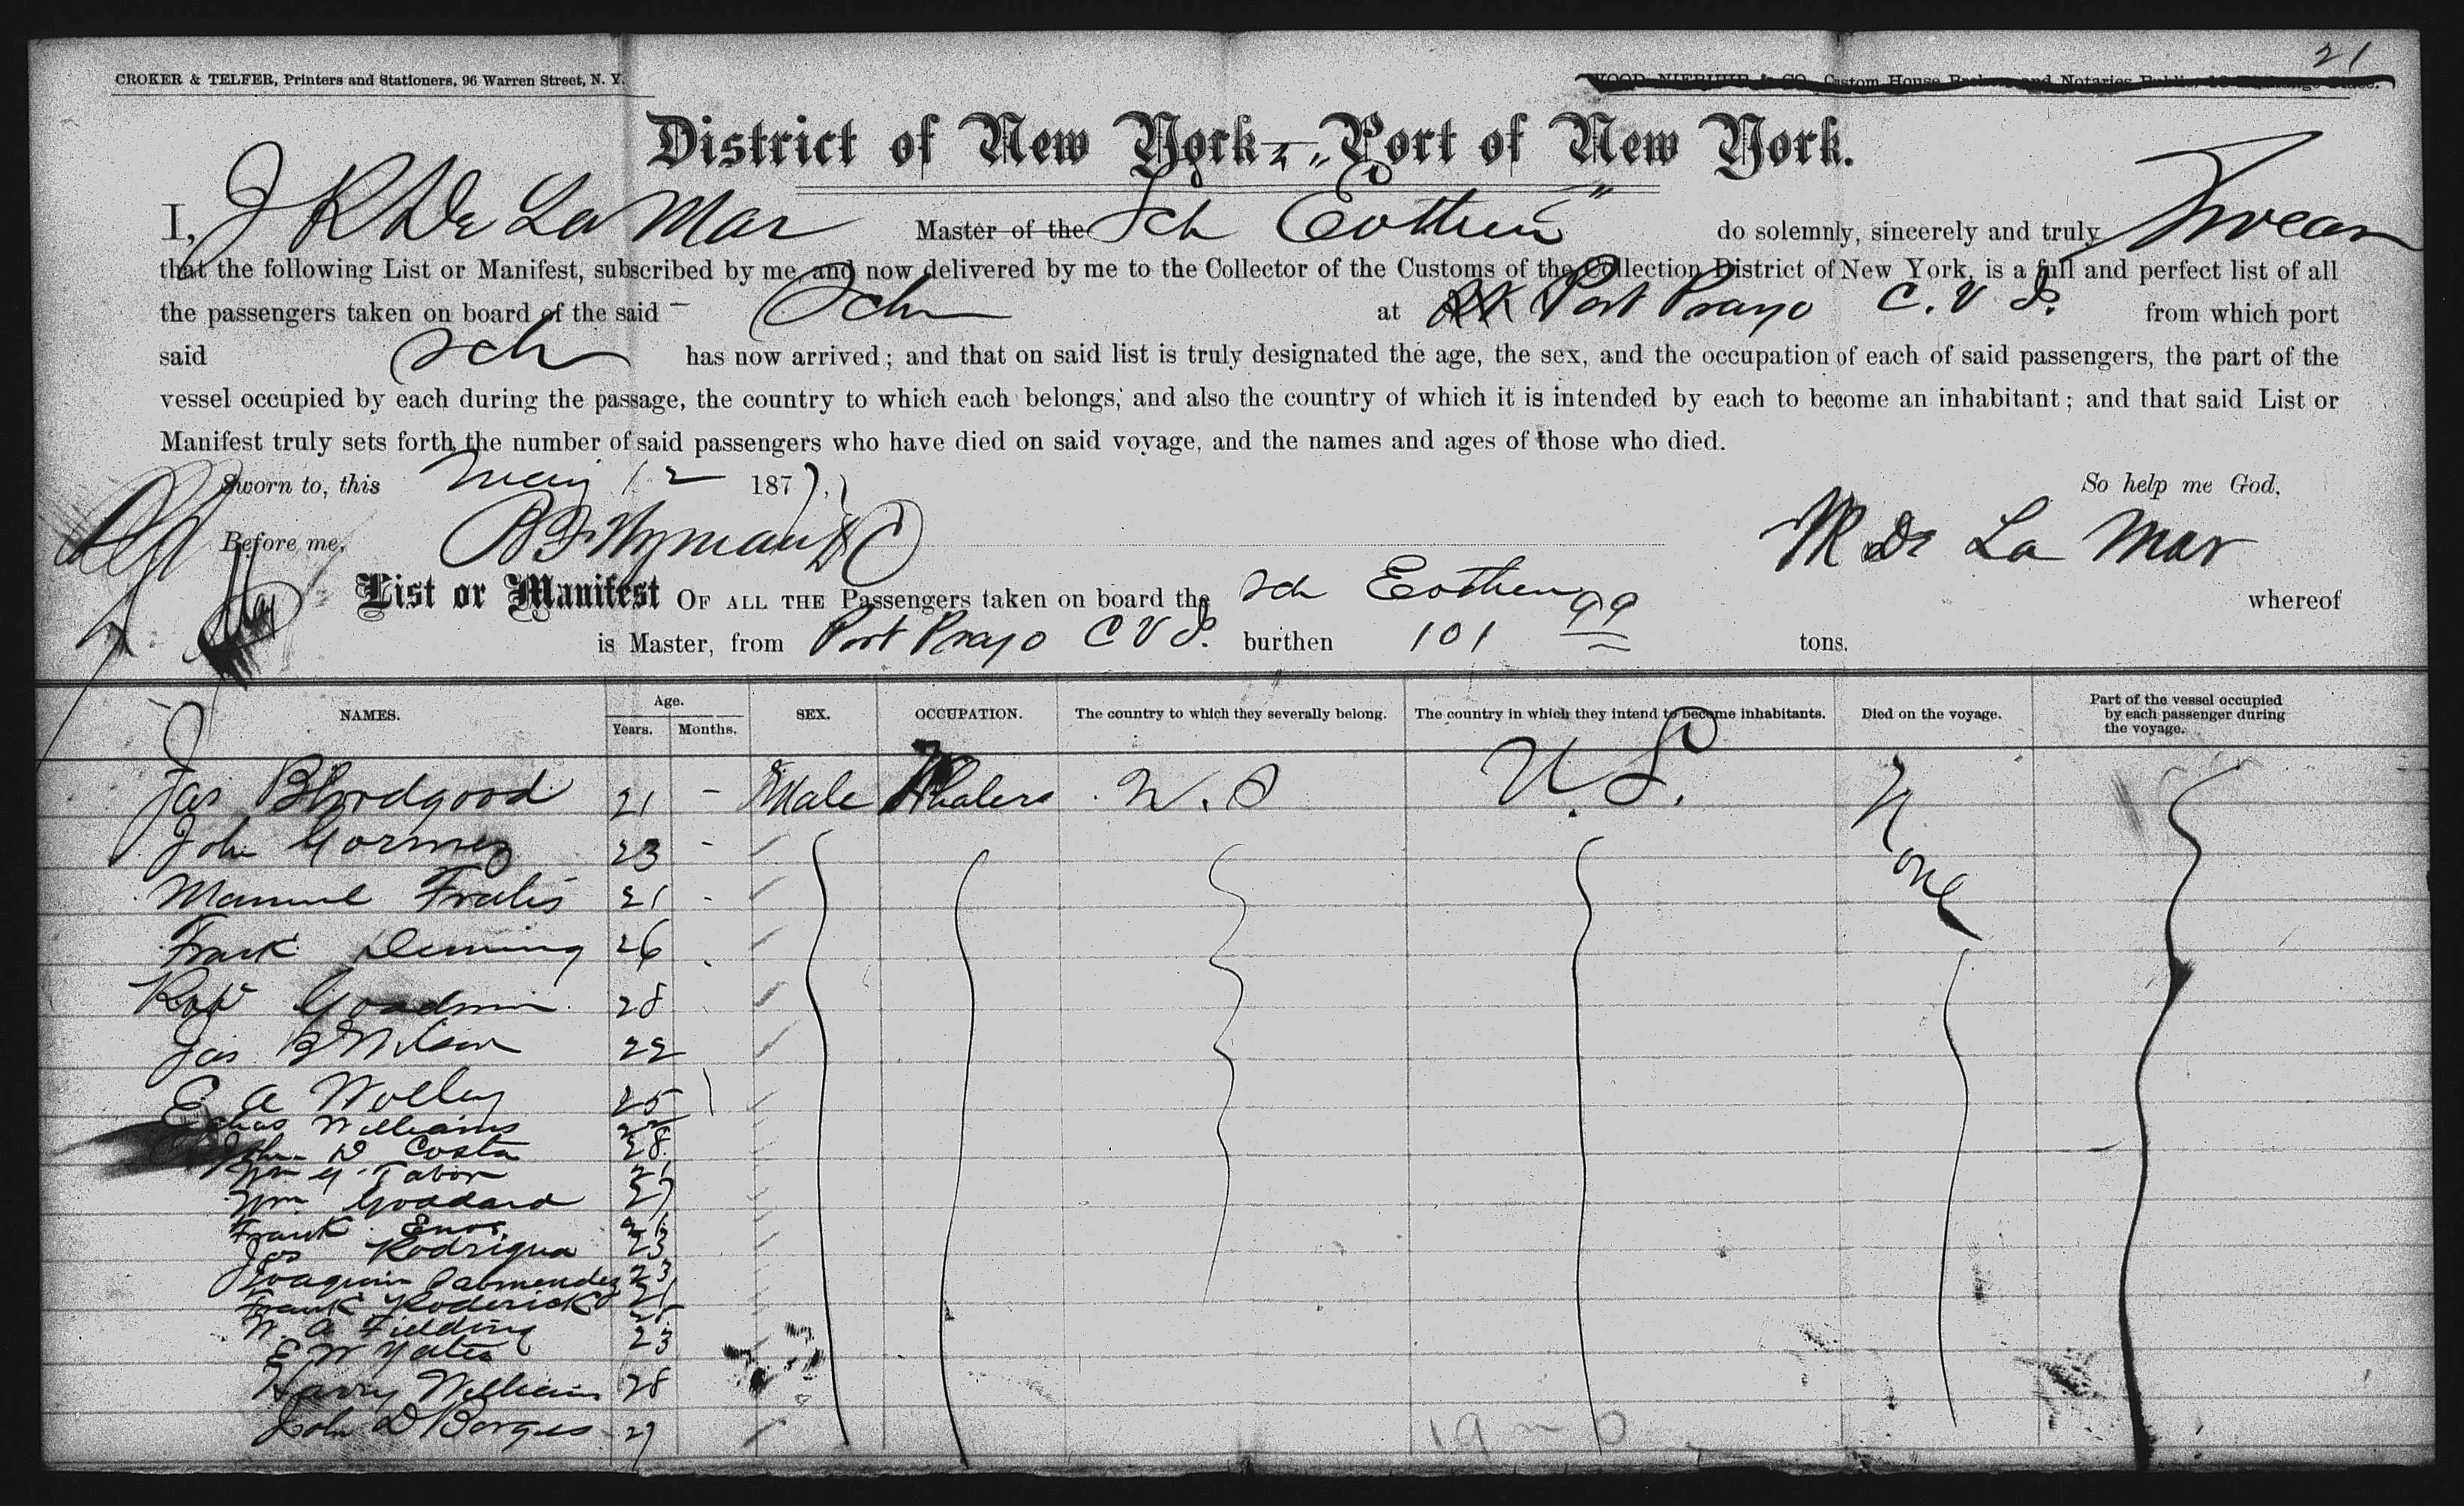 21
CROKER & TELFER, Printers and Stationers, 96 Warren Street, N. Y.
Custom House and Notaries
District of New York, Port of New York.
I, J R De La Mar Master of the Sch "Eothen" do solemnly, sincerely and truly Swear
that the following List or Manifest, subscribed by me, and now delivered by me to the Collector of the Customs of the Collection District of New York, is a full and perfect list of all
the passengers taken on board of the said Sch at Port Prayo C. V. I. from which port
said Sch has now arrived; and that on said list is truly designated the age, the sex, and the occupation of each of said passengers, the part of the
vessel occupied by each during the passage, the country to which each belongs, and also the country of which it is intended by each to become an inhabitant; and that said List or
Manifest truly sets forth the number of said passengers who have died on said voyage, and the names and ages of those who died.
Sworn to, this May 12 1877. So help me God,
Before me, B F Wyman DC JR De La Mar
List or Manifest OF ALL THE Passengers taken on board the Sch Eothen whereof
is Master, from Port Prayo C V I. burthen 101 99 tons.
NAMES. Age. Years. Months. SEX. OCCUPATION. The country to which they severally belong. The country in which they intend to become inhabitants. Died on the voyage. Part of the vessel occupied by each passenger during the voyage.
Jas Bloodgood 21 - Male Whalers U. S U. S. None
John Gormez 23 -
Manuel Fratis 21 -
Frank Deming 26
Robt Goodwin 28
Jas B Wilson 22
E A Wolley 25
Chas Williams 22
John D Costa 28
Wm G Tabor 21
Wm Goddard 27
Frank Enos 26
Jos Rodrigua 23
Joaquin 23
Frank Roderick 21
W. A Fielding 25
E W Yates 23
Harry William 28
John D Borges 29
19